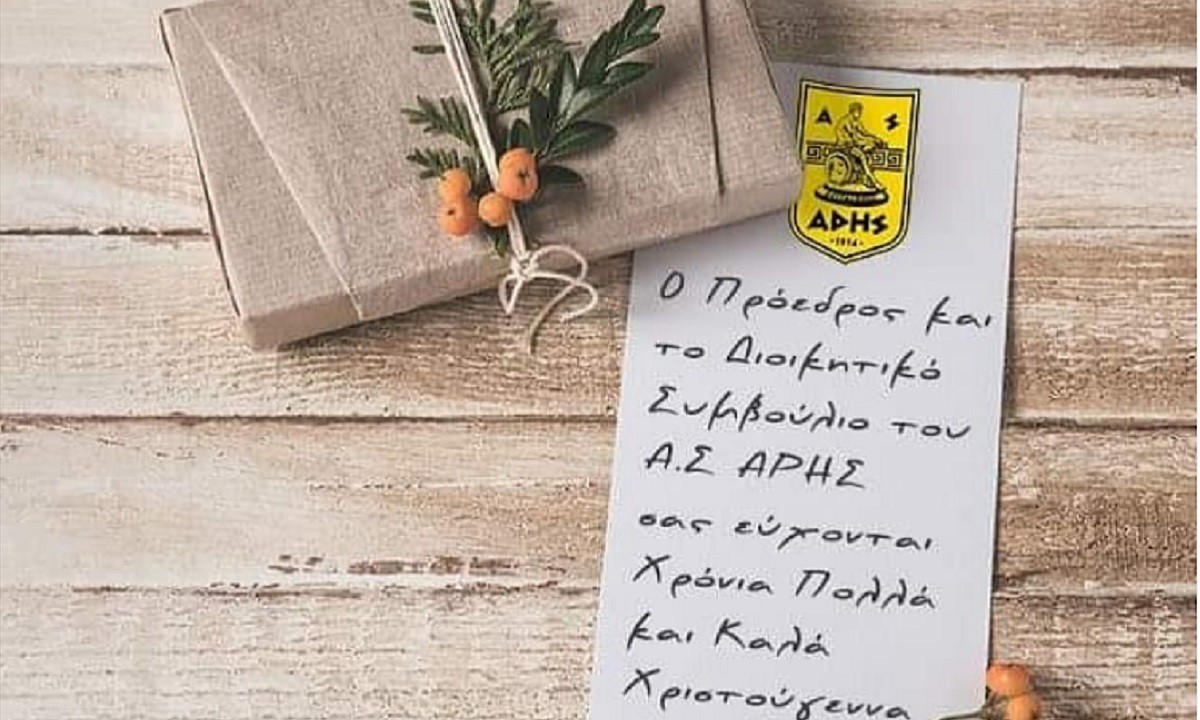 Α Σ
ΑΡΗΣ
·1914·
Ο Πρόεδρος και
το Διοικητικό
Συμβούλιο του
Α.Σ ΑΡΗΣ
σας εύχονται
Χρόνια Πολλά
και Καλά
Χριστούγεννα